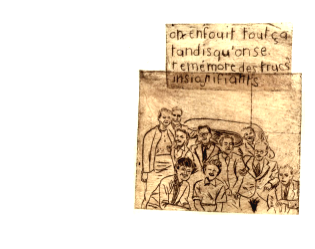 on enfouit tout ça
tandisqu'on se
remémore des trucs
insignifiants